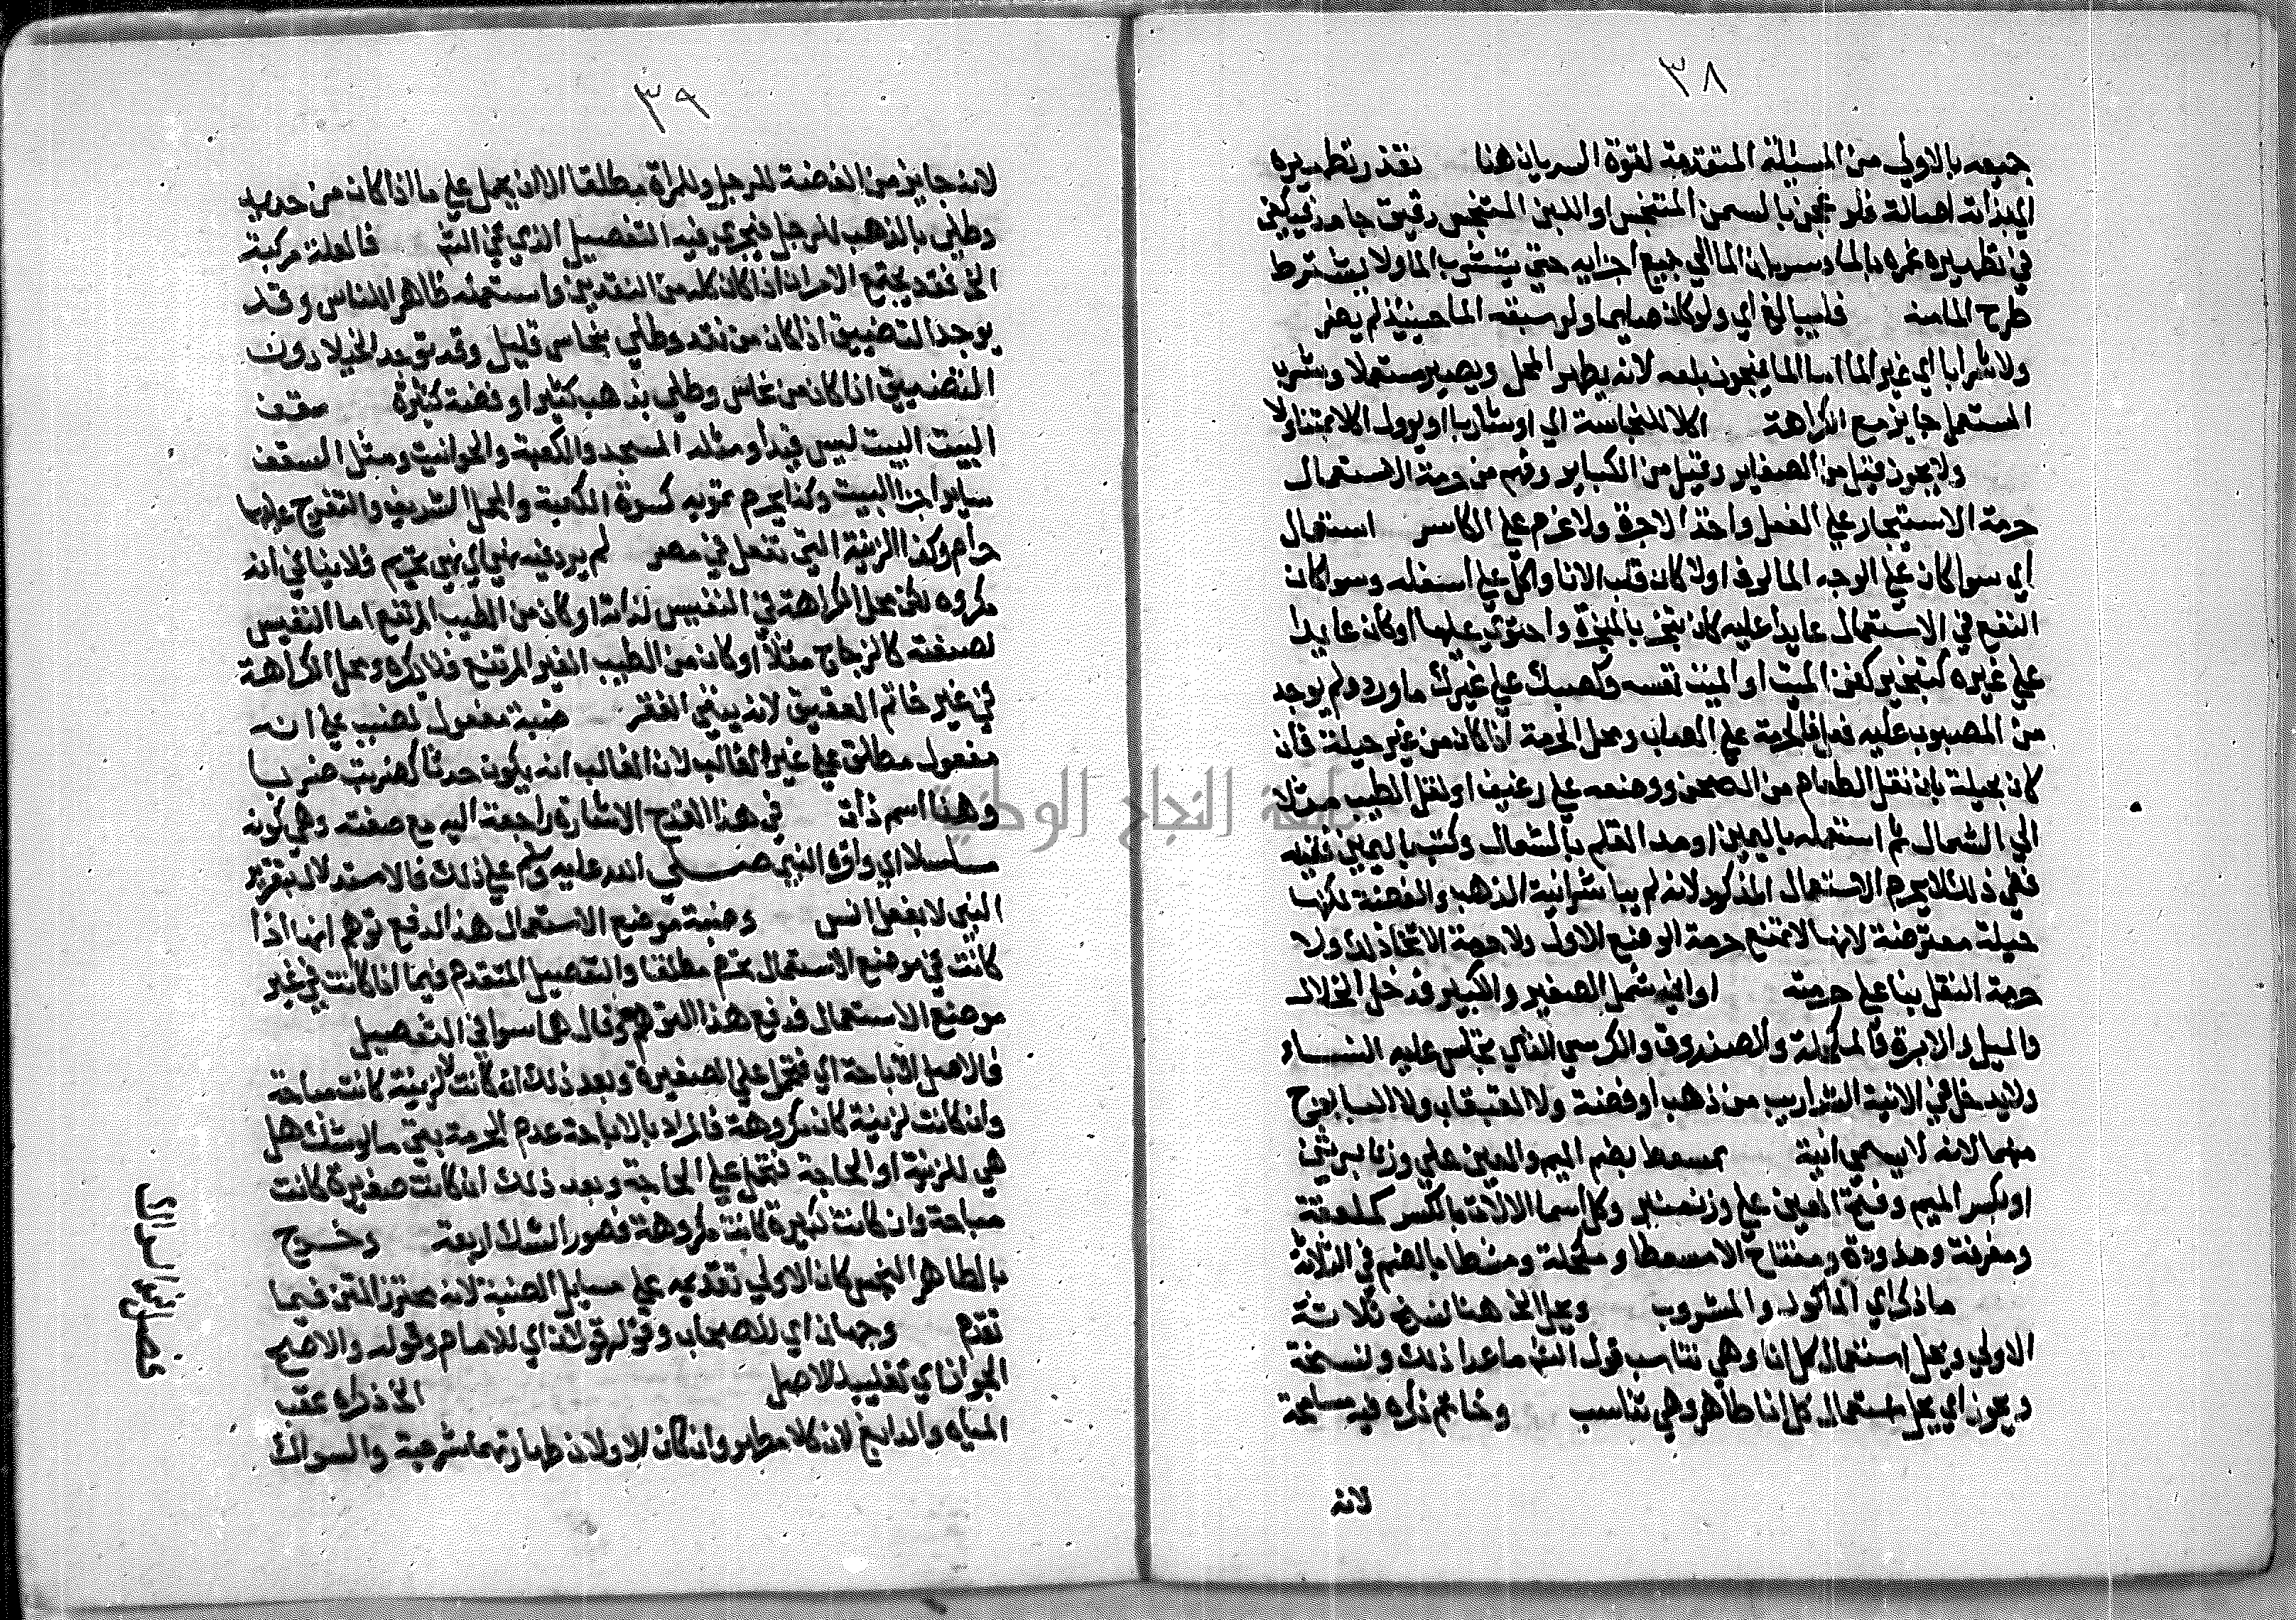 ٣٨
جميعه بالاولي من المسئلة المتقدمة لقوة السريان هنا تعذر تطهيره
اي بذاته اصالة فلو عجن بالسمن المتنجس او اللبن المتنجس رقيق جامد فيكفي
في تطهيره غمره بالما وسريان الما الي جميع اجزايه حتي يتشرب الما ولا يشترط
طرح الما منه قليبا الخ اي ولو كان صابها ولو سبقه الما حينيذ لم يضر
ولا شرابا اي غير الما اما الما فيجوز بلعه لانه يطهر المحل ويصير مستعملا وشرب
المستعمل جايز مع الكراهة اكلا للنجاسة اي او شاربا او يرول اكلا بمتناولا
ولا يجوز قيل من الصغاير وقيل من الكباير وفهم من حرمة الاستعمال
حرمة الاستيجار علي الفعل واخذ الاجرة ولا غرم علي الكاسر استعمال
اي سوا كان علي الوجه المالوف اولا كان قلب الانا واكل علي اسفله وسوا كان
النفع في الاستعمال عايدا عليه كان تبخر بالمبخرة واحتوي عليها او كان عايدا
علي غيره كتبخير كفن الميت او الميت نفسه وكصبك علي غيرك ما ورد ولم يوجد
من المصبوب عليه فعل فالحرمة علي الصاب ومحل الحرمة اذا كان من غير حيلة فان
كان بحيلة بان نقل الطعام من الصحن ووضعه علي رغيف او نقل الطيب مثلا
الي الشمال ثم استعمله باليمين او مد القلم بالشمال وكتب باليمين
ففي ذلك لا يحرم الاستعمال المذكور لانه لم يباشر انية الذهب والفضة لكنها
حيلة معترضة لانها لا تمنع حرمة الوضع الاول ولا حرمة الاتخاذ لك ولا
حرمة النقل بنا علي حرمته اواني شمل الصغير والكبير فدخل الخلال
والميل والابرة والمكحلة والصندوق والكرسي الذي تجلس عليه النساء
ولا يدخل في الانية الشراريب من ذهب او فضة ولا القبقاب ولا السابوج
منهما لانه لا يسمي انية بمسعط بضم الميم والعين علي وزن برثن
او بكسر الميم وفتح العين علي وزن منبر وكل اسما الالات بالكسر كملعقة
ومغرفة ومفتاح الا مسعطا ومكحلة ومشطا بالضم في الثلاثة
ما ذكر اي الماكول والمشروب ويحل الخ هنا نسخ ثلاثة
الاولي ويحل استعمال كل انا وهي تناسب قول الش ما عدا ذلك ونسخة
ويجوز اي يحل استعمال كل انا طاهر وهي تناسب وخاتم ذكره فيه مسامحة
لانه
٣٩
لانه جايز من الفضة للرجل وللمراة مطلقا الا ان يحمل علي ما اذا كان من حديد
وطلي بالذهب للرجل فيجري فيه التفصيل الذي في الش فالعلة مركبة
الخ فقد يجتمع الامران اذا كان كله من النقدين واستعمله ظاهرا للناس وقد
يوجد التضييق اذا كان من نقد وطلي بنحاس قليل وقد توجد الخيلا دون
التضييق اذا كان من نحاس وطلي بذهب كثير او فضة كثيرة سقف
البيت البيت ليس قيدا ومثله المسجد والكعبة والحوانيت ومثل السقف
ساير اجزا البيت وكذا يحرم تمويه كسوة الكعبة والمحمل الشريف والتفرج عليها
حرام وكذا الزينة التي تفعل في مصر لم يرد فيه نهي اي نهي تحريم فلا ينافي انه
مكروه لكن محل الكراهة في النفيس لذاته او كان من الطيب المرتفع اما النفيس
لصنعته كالزجاج مثلا او كان من الطيب الغير المرتفع فلا يكره ومحل الكراهة
في غير خاتم العقيق لانه ينفي الفقر ضبة مفعول نصب علي انه
مفعول مطلق علي غير الغالب لان الغالب انه يكون حدثا كضربت ضربا
وهنا اسم ذات في هذا القدح الاشارة راجعة اليه مع صفته وهي كونه
مسلسلا اي واقره النبي صلي الله عليه وسلم علي ذلك فالاستدلال بتقرير
النبي لا بفعل انس وضبة موضع الاستعمال هذا لدفع توهم انها اذا
كانت في موضع الاستعمال تحرم مطلقا والتفصيل المتقدم فيما اذا كانت في غير
موضع الاستعمال فدفع هذا التوهم وقال هما سوا في التفصيل
فالاصل الاباحة اي فتحمل علي الصغيرة وبعد ذلك ان كانت لا لزينة كانت مباحة
وان كانت لزينة كان مكروهة فالمراد بالاباحة عدم الحرمة بقي ما لو شك هل
هي للزينة او للحاجة فتحمل علي الحاجة وبعد ذلك ان كانت صغيرة كانت
مباحة وان كانت كبيرة كانت مكروهة فصور الشك اربعة وخرج
بالطاهر النجس كان الاولي تقديمه علي مسايل الضبة لانه محترز المتن فيما
تقدم وجهان اي للاصحاب وقوله قولان اي للامام وقوله والاصح
الجواز اي تغليبا للاصل الخ ذكره عقب
المياه والدابغ لان كلا مطهر وان كان الاولان طهارتهما شرعية والسواك
فصل في السواك
جامعة النجاح الوطنية